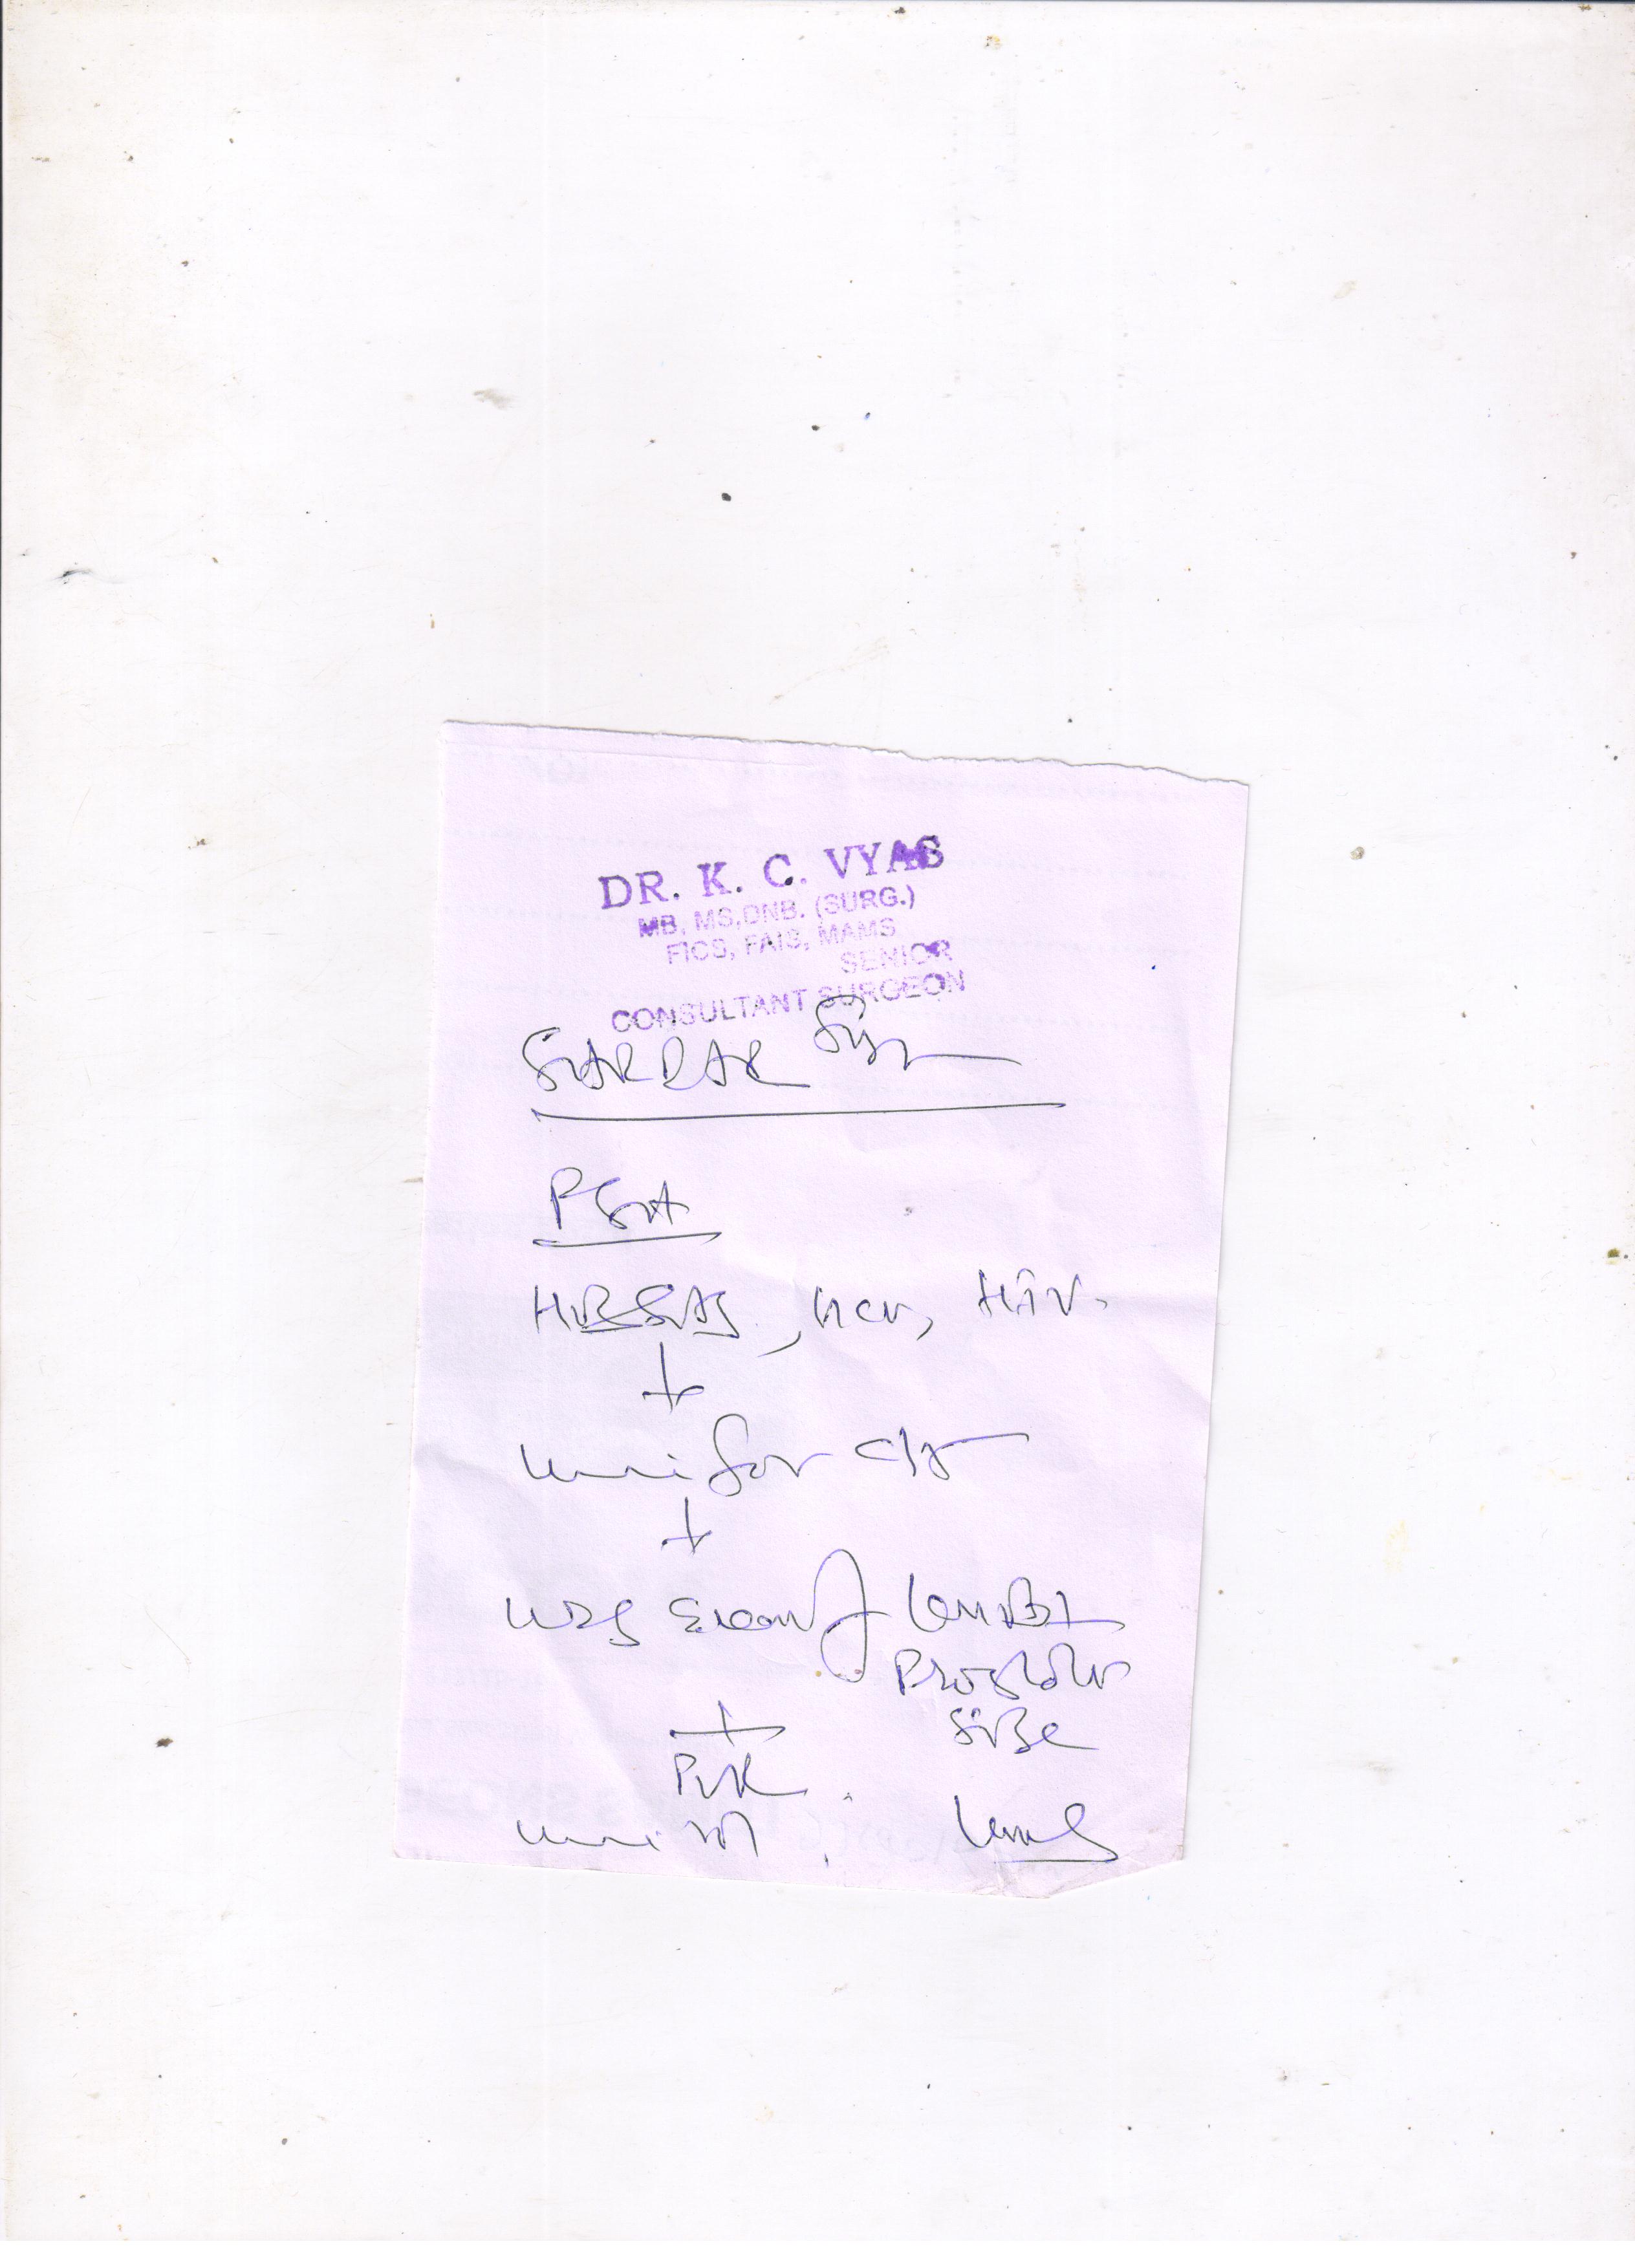 DR. K. C. VYAS
MB, MS, DNB. (SURG.)
FICS, FAIS, MAMS
SENIOR
CONSULTANT SURGEON
SARDAR
PSA
HBSAg, HCV, HIV.
+
Urine for C/S
+
USG
Prostate
Size
+
PVR
Urine